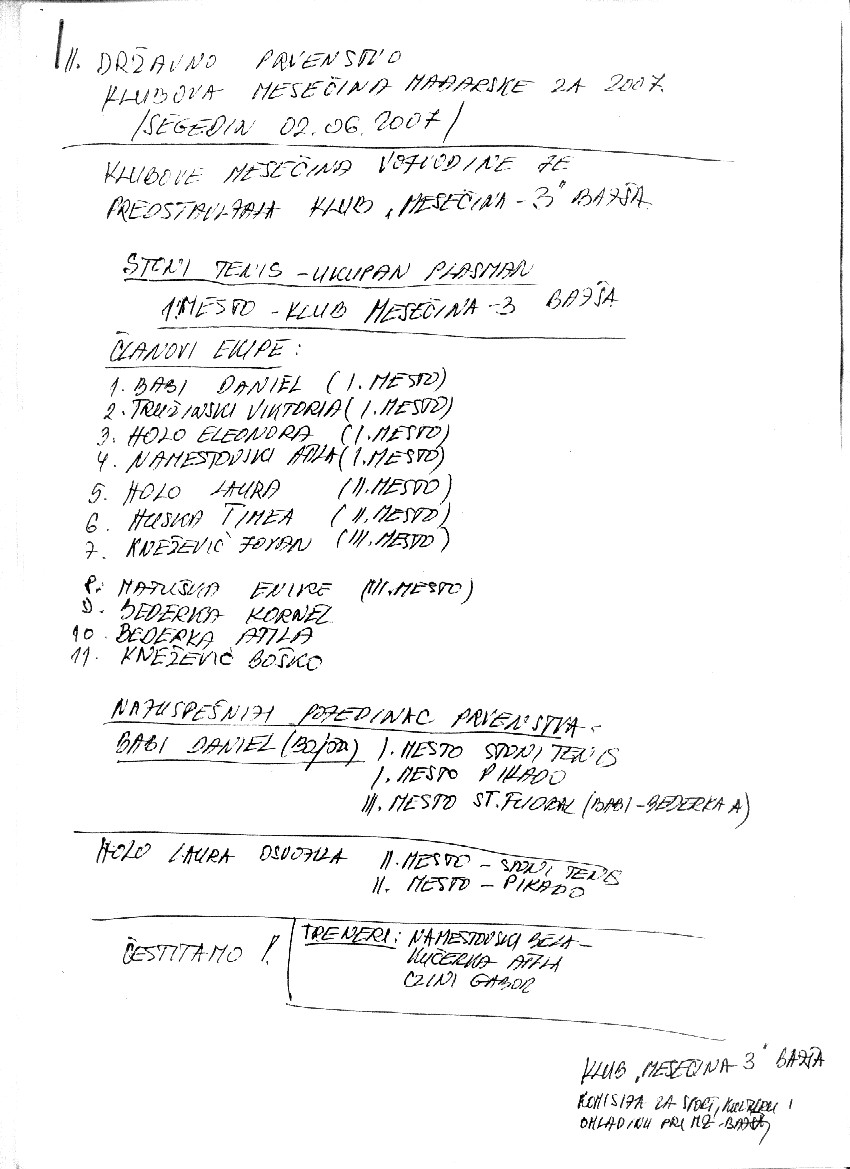 II. DRŽAVNO PRVENSTVO
KLUBOVA MESEČINA MAĐARSKE ZA 2007.
/SEGEDIN 02.06.2007/
KLUBOVE MESEČINA VOJVODINE JE
PREDSTAVLJAJA KLUB „MESEČINA-3" BAJŠA
STONI TENIS - UKUPAN PLASMAN
1. MESTO - KLUB MESEČINA-3 BAJŠA
ČLANOVI EKIPE:
1. BABI DANIEL (I. MESTO)
2. TRUŽINSKI VIKTORIA (I. MESTO)
3. HOLO ELEONORA (I. MESTO)
4. NAMESTOVSKI ATILA (I. MESTO)
5. HOLO LAURA (II. MESTO)
6. HUSKA TIMEA (II. MESTO)
7. KNEŽEVIĆ JOVAN (III. MESTO)
8. MATUŠKA ENIKE (III. MESTO)
9. BEDERKA KORNEL
10. BEDERKA ATILA
11. KNEŽEVIĆ BOŠKO
NAJUSPEŠNIJI POJEDINAC PRVENSTVA -
BABI DANIEL I. MESTO STONI TENIS
I. MESTO PIKADO
III. MESTO ST. FUDBAL (BABI - BEDERKA A)
HOLO LAURA OSVOJILA II. MESTO - STONI TENIS
II. MESTO - PIKADO
ČESTITAMO !
TRENERI: NAMESTOVSKI BELA -
KUČERKA ATILA
CZINI GABOR
KLUB „MESEČINA-3" BAJŠA
KOMISIJA ZA SPORT, KULTURU I
OMLADINU PRI MZ - BAJŠA